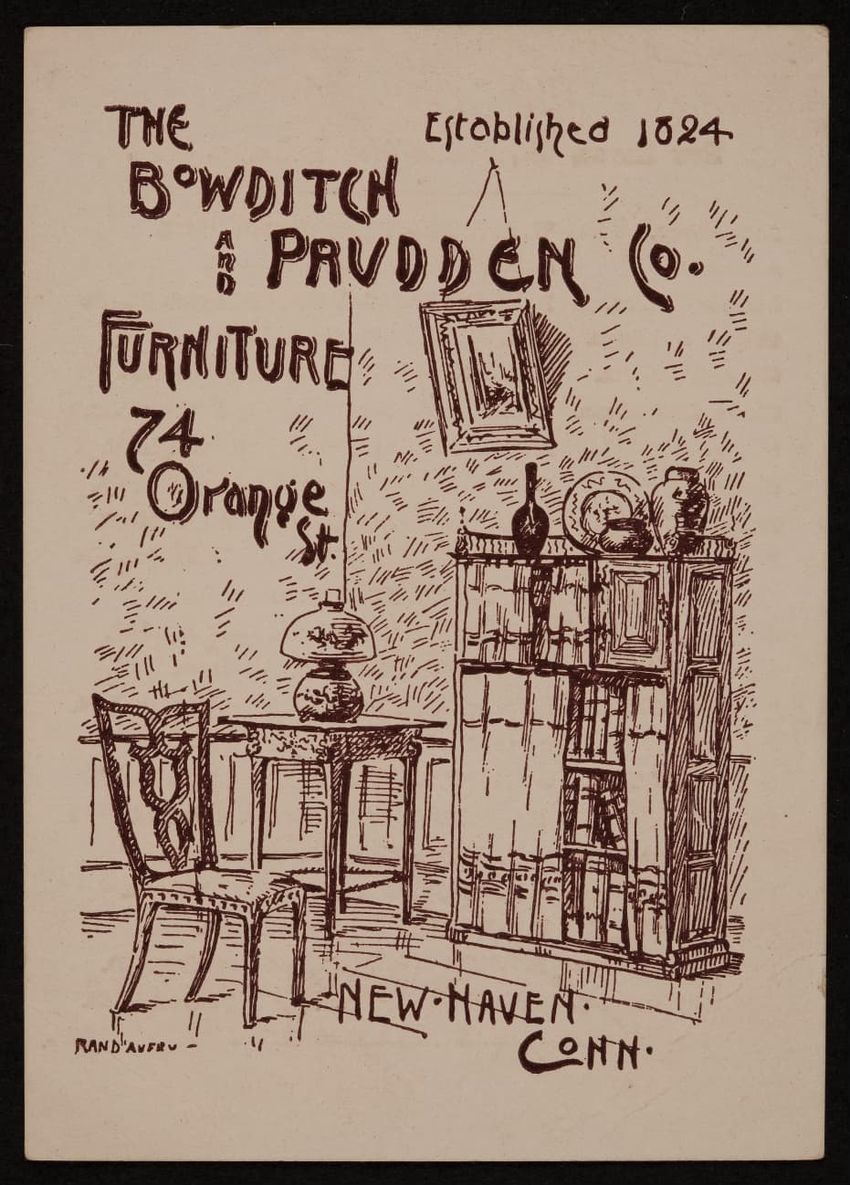 THE
Established 1824
BOWDITCH
AND PRUDDEN Co.
FURNITURE
74
Orange
St.
NEW·HAVEN·
CONN.
RAND AVERY -